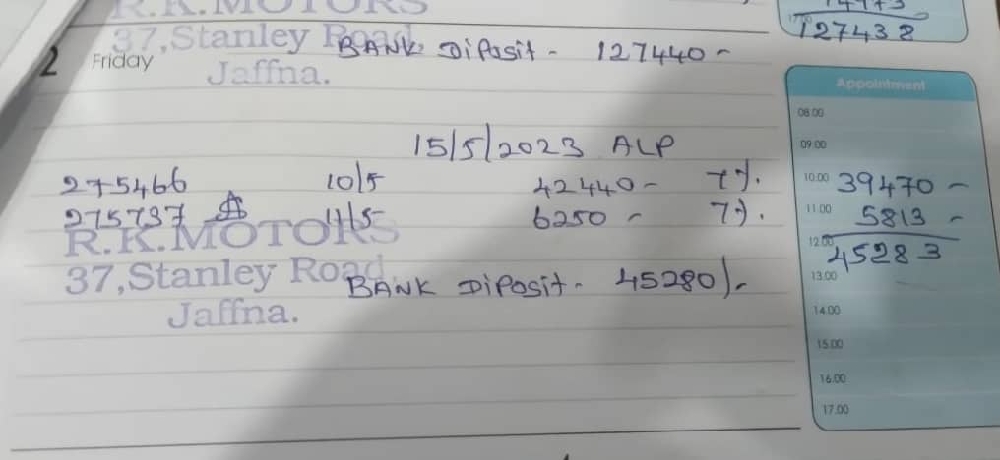 R.K.MOTORS
14973
37,Stanley Road BANK DiPosit - 127440 -
127438
2 Friday
Jaffna.
Appointment
08.00
15/5/2023 ALP
09.00
275466 10/5 42440 - 7%. 10.00 39470 -
275737 11/5 6250 - 7%. 11.00 5813 -
R.K.MOTORS
12.00 45283
37,Stanley Road. BANK DiPosit - 45280/-
13.00
Jaffna.
14.00
15.00
16.00
17.00